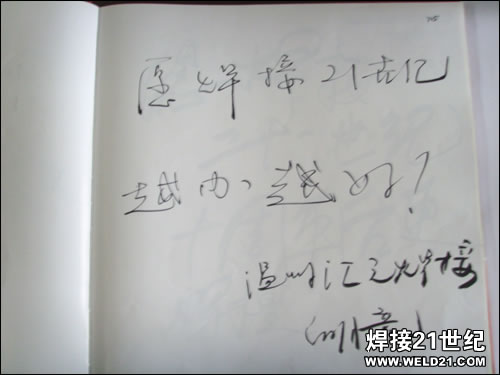 愿焊接21世纪
越办越好!
温州汇元焊接
焊接21世纪
WWW.WELD21.COM